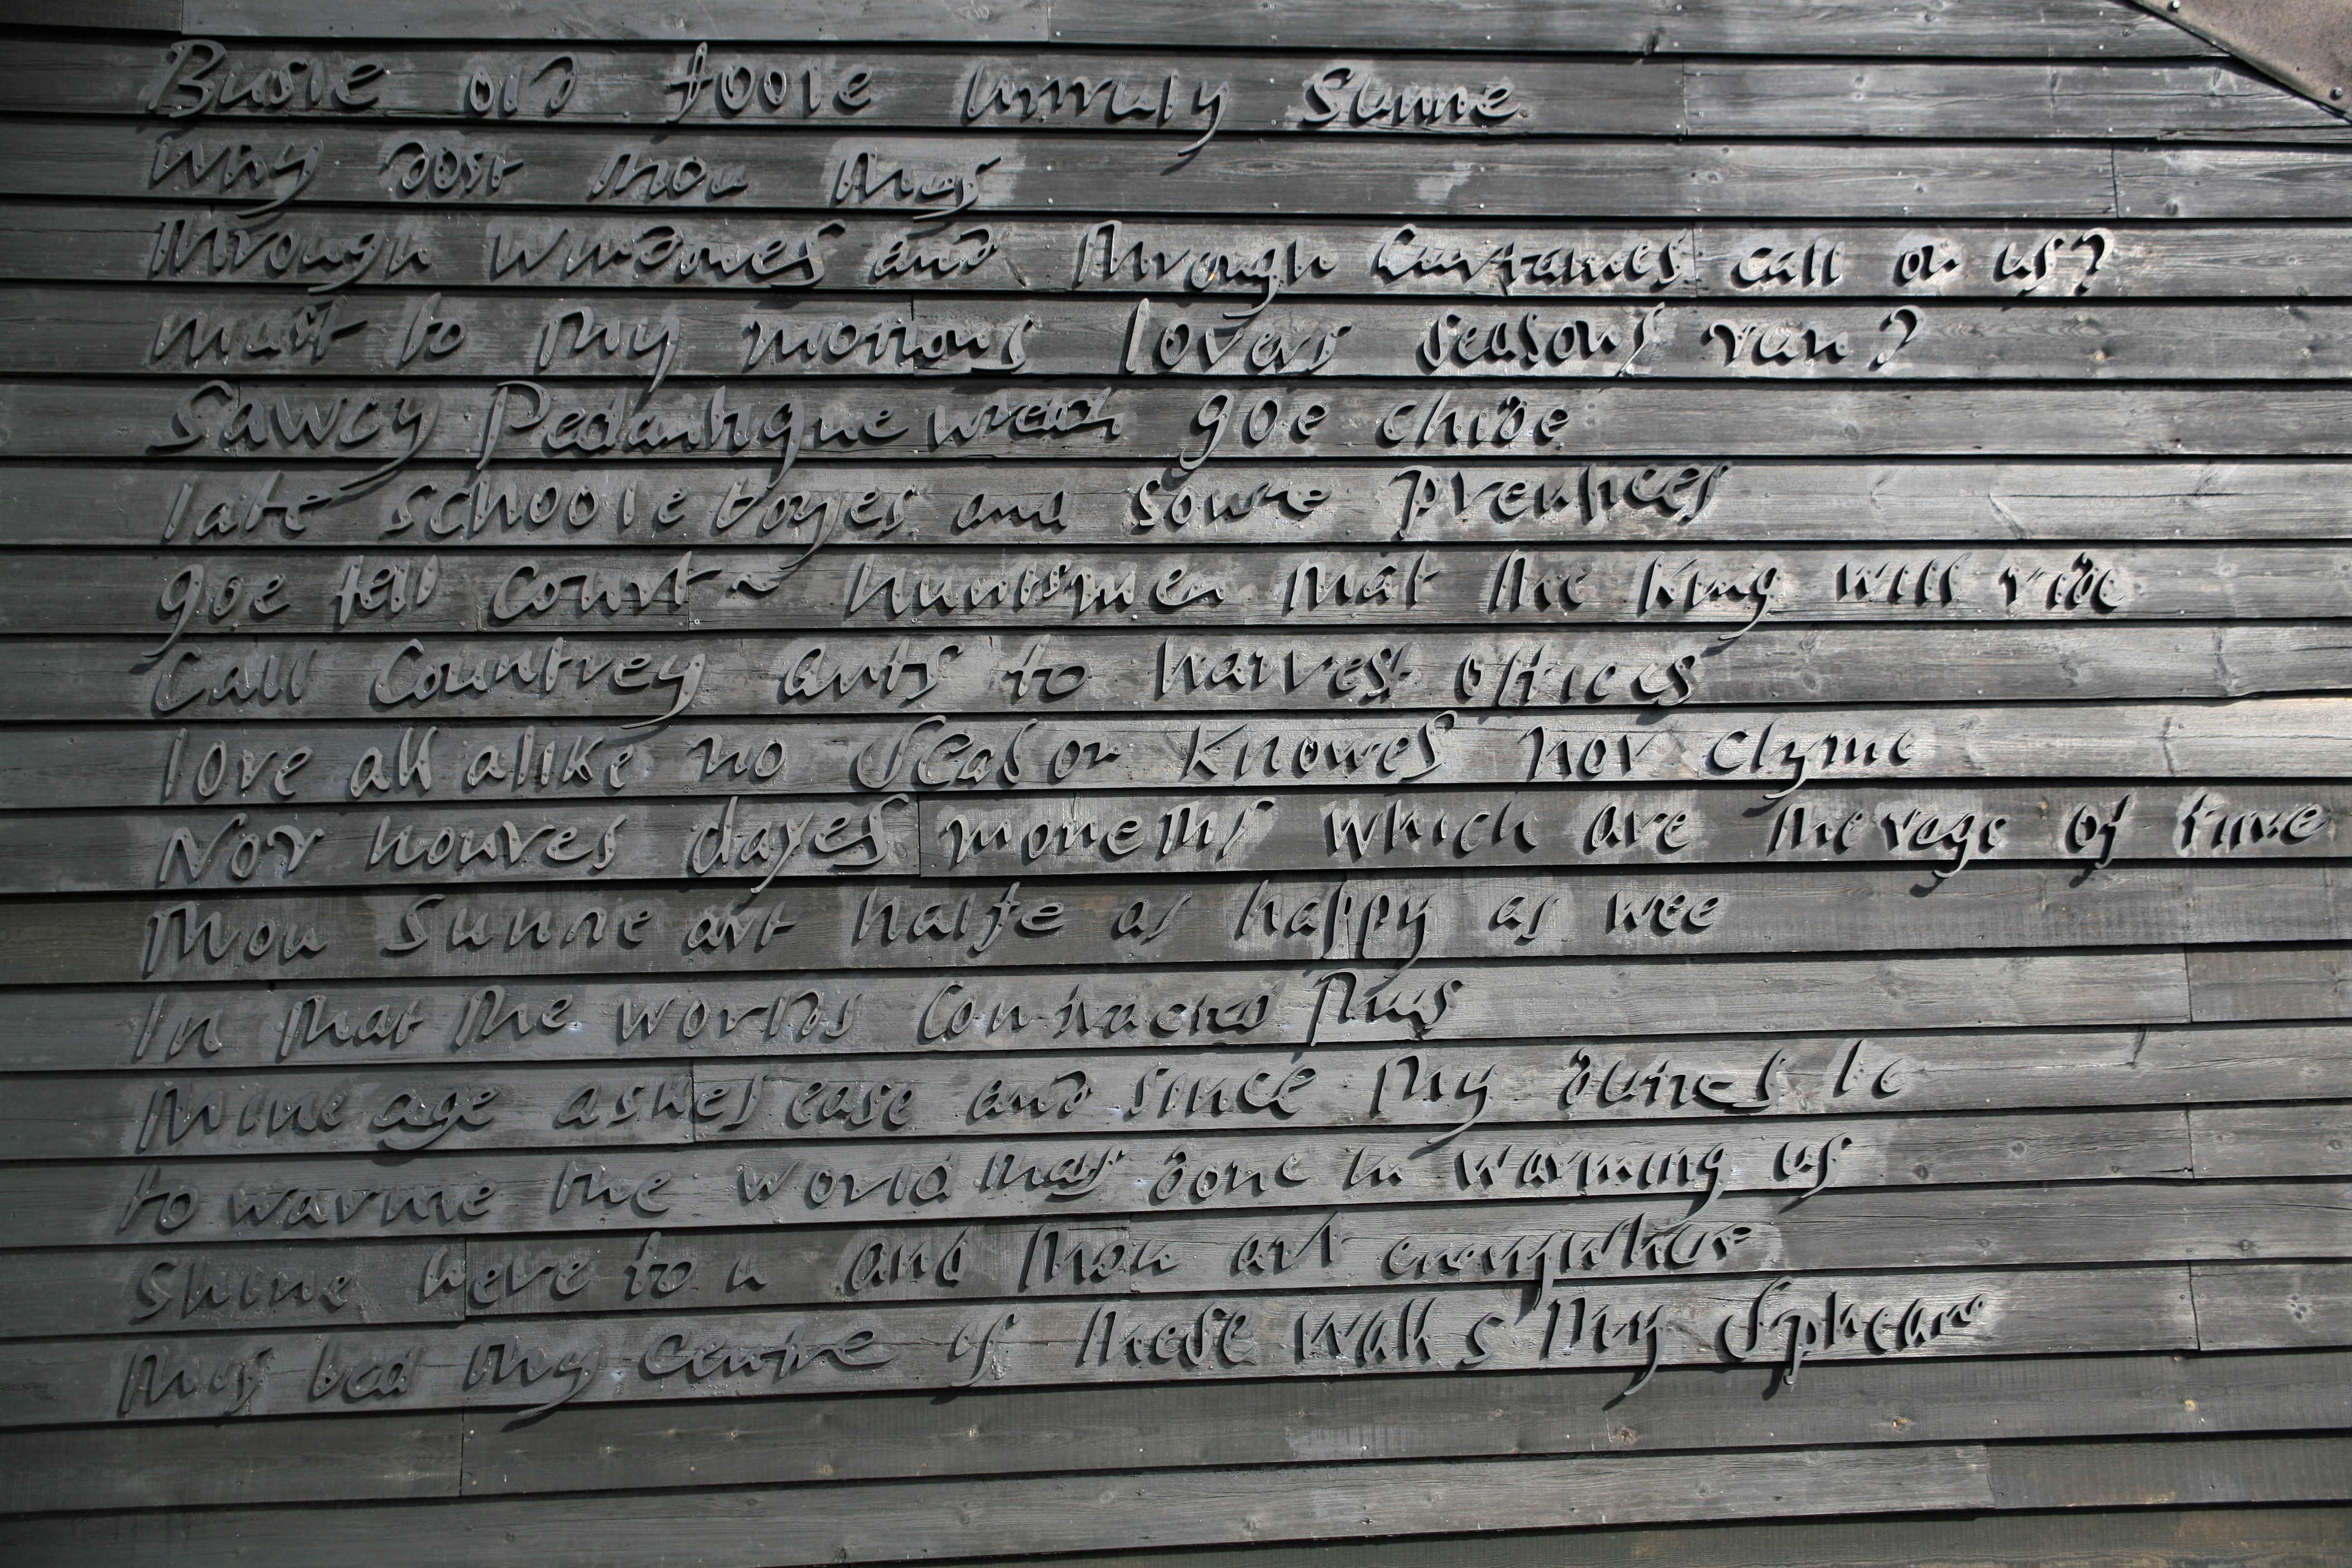 Busie old foole unruly Sunne
Why dost thou thus
through windowes and through Curtaines call on us?
must to thy motions lovers seasons run?
Sawcy Pedantique wretch goe chide
late schoole boyes and sowre prentices
goe tell Court-huntsmen that the King will ride
Call Countrey ants to harvest offices
love all alike no season knowes nor clyme
Nor houres dayes moneths which are the rags of time
Thou Sunne art halfe as happy as wee
In that the worlds Contracted thus
Thine age askes ease and since thy duties be
to warme the world thats done in warming us
Shine here to u and thou art everywhere
This bed thy Centre is these walls thy Spheare